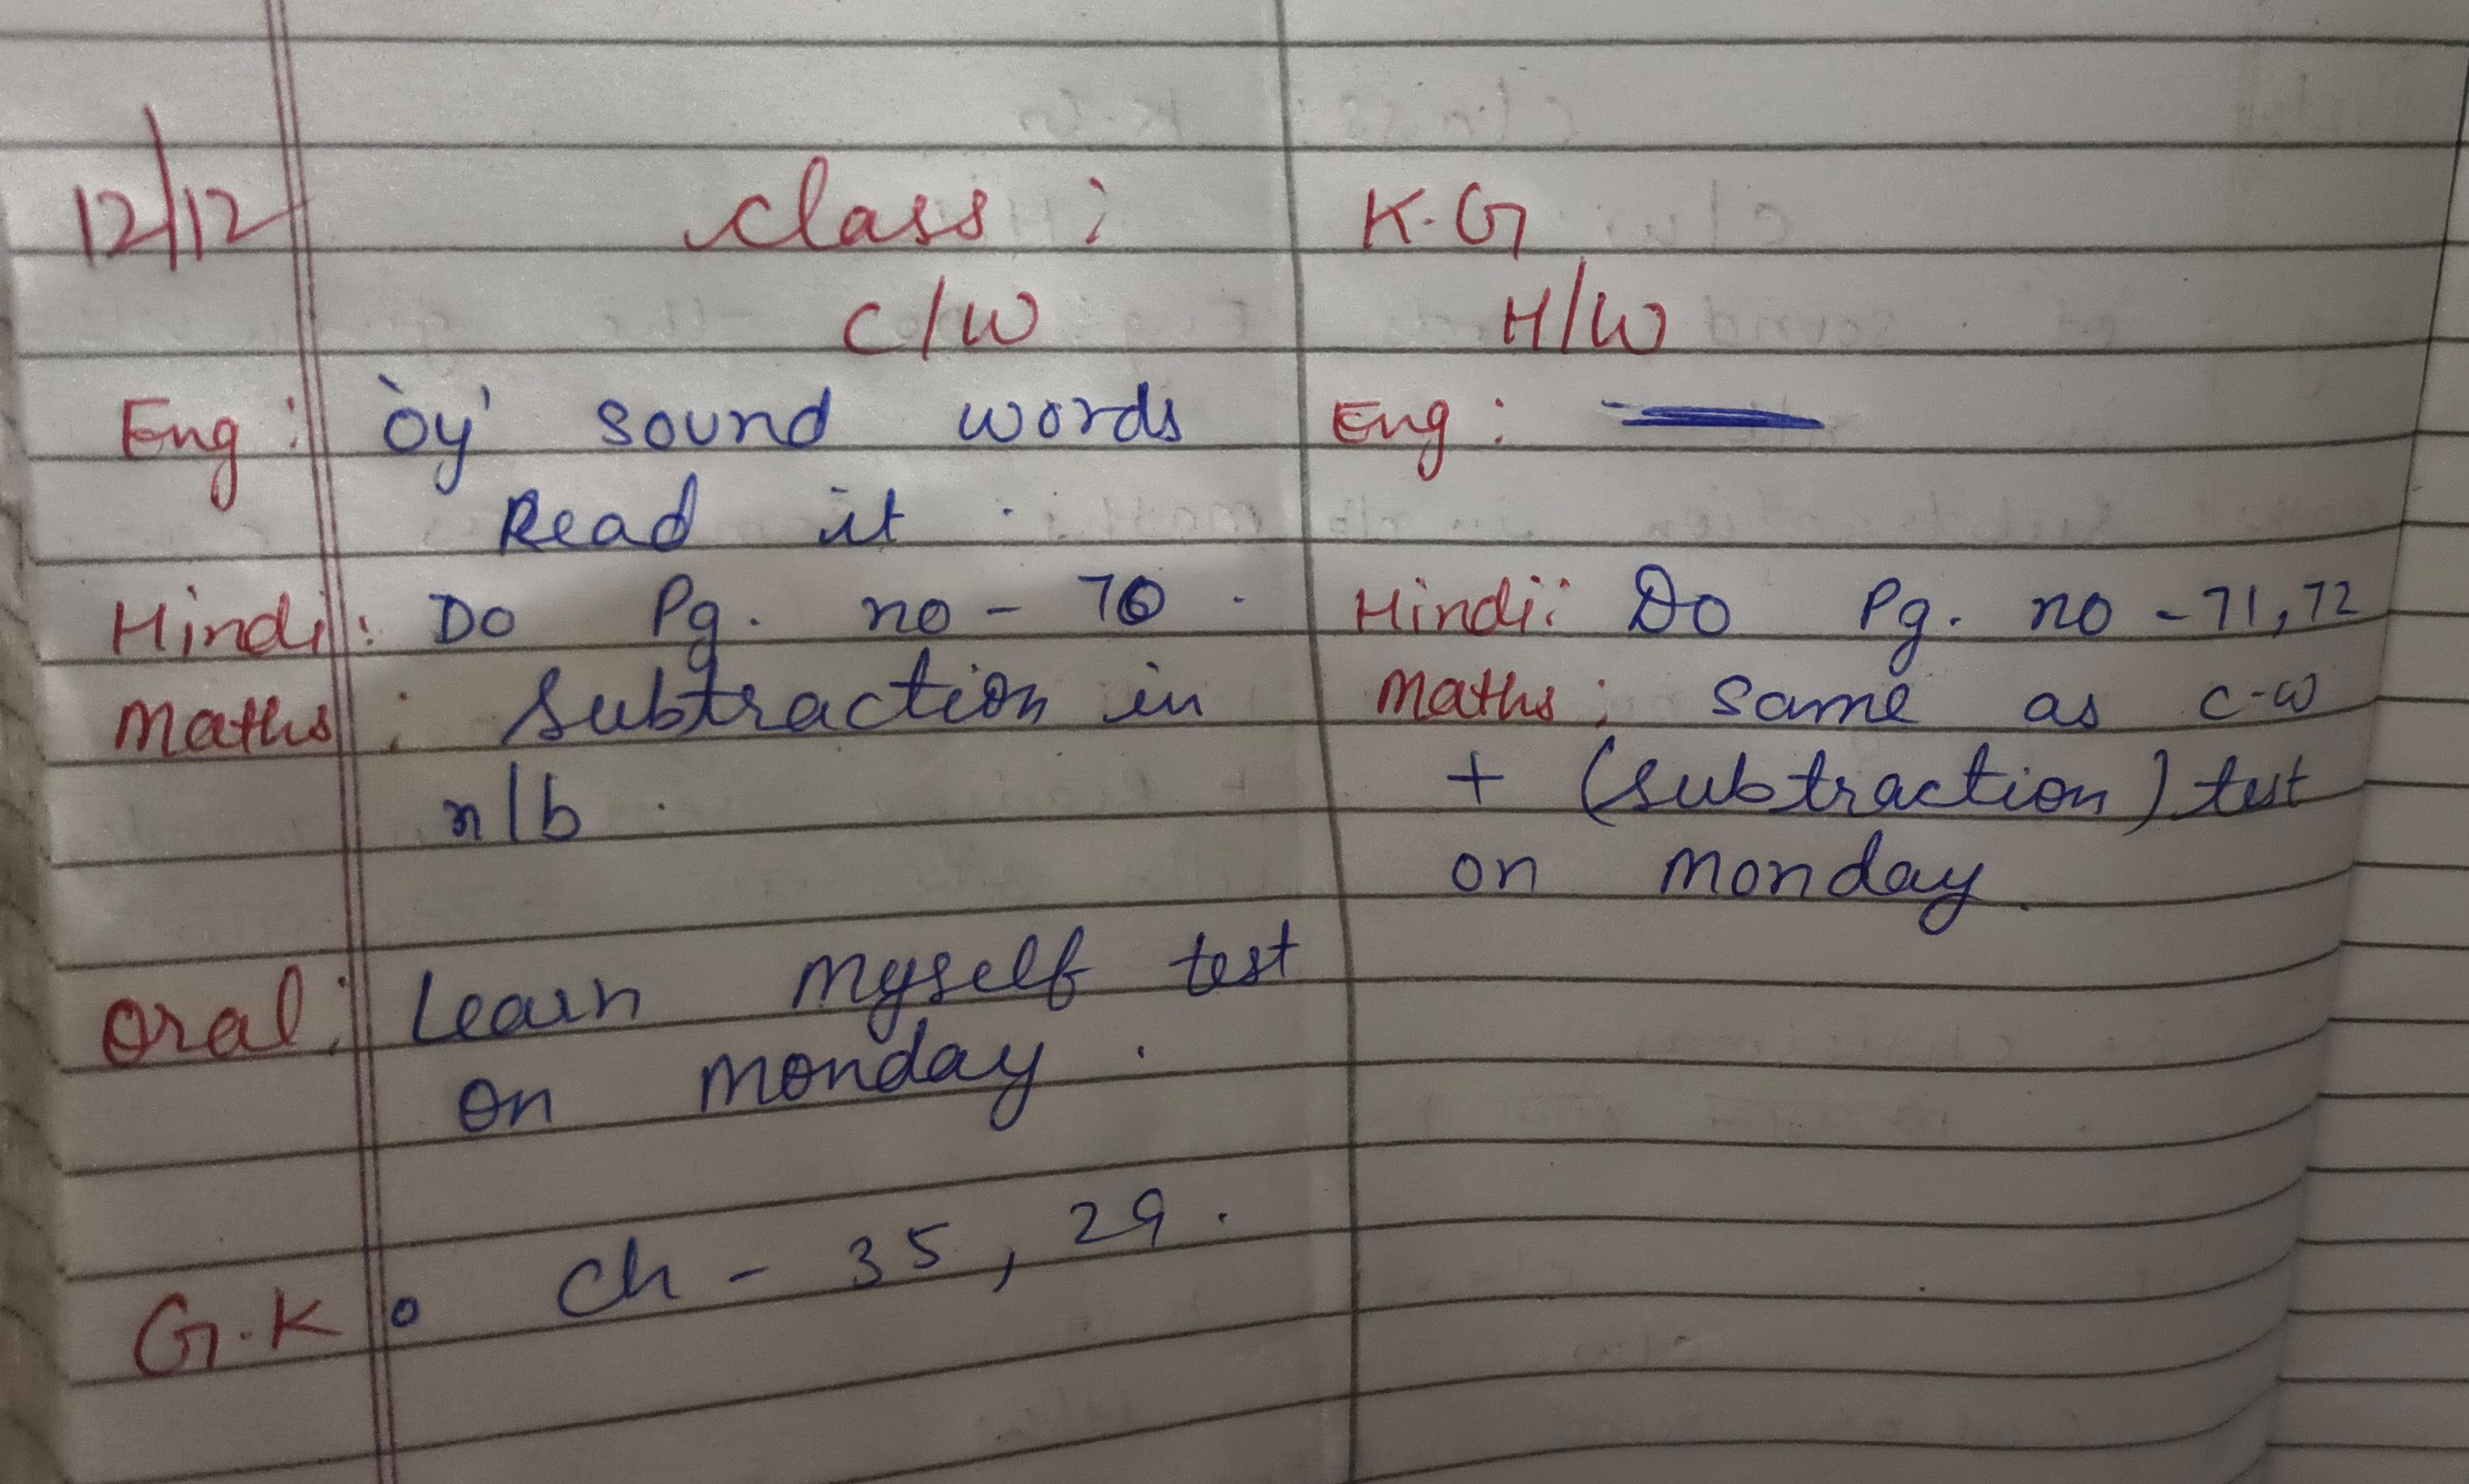 12/12 Class : K.G
C/W H/W
Eng : 'oy' sound words
Read it .
Eng : —
Hindi : Do Pg. no - 70 .
Hindi : Do Pg. no - 71, 72
Maths : Subtraction in
n/b .
Maths : Same as c-w
+ (subtraction) test
on Monday .
Oral : Learn Myself test
on Monday .
G.K : Ch - 35, 29 .